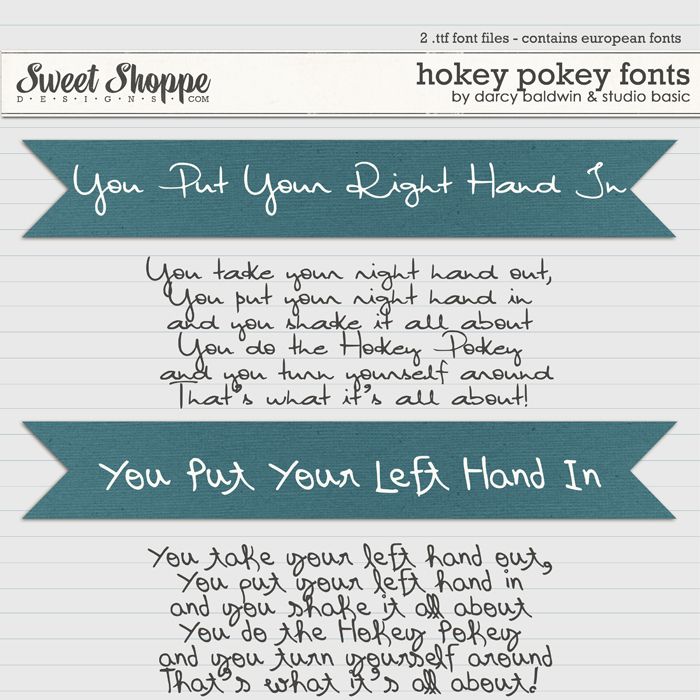 2 .ttf font files - contains european fonts
Sweet Shoppe
DESIGNS.COM
hokey pokey fonts
by darcy baldwin & studio basic
You Put Your Right Hand In
You take your right hand out,
You put your right hand in
and you shake it all about
You do the Hokey Pokey
and you turn yourself around
That's what it's all about!
You Put Your Left Hand In
You take your left hand out,
You put your left hand in
and you shake it all about
You do the Hokey Pokey
and you turn yourself around
That's what it's all about!